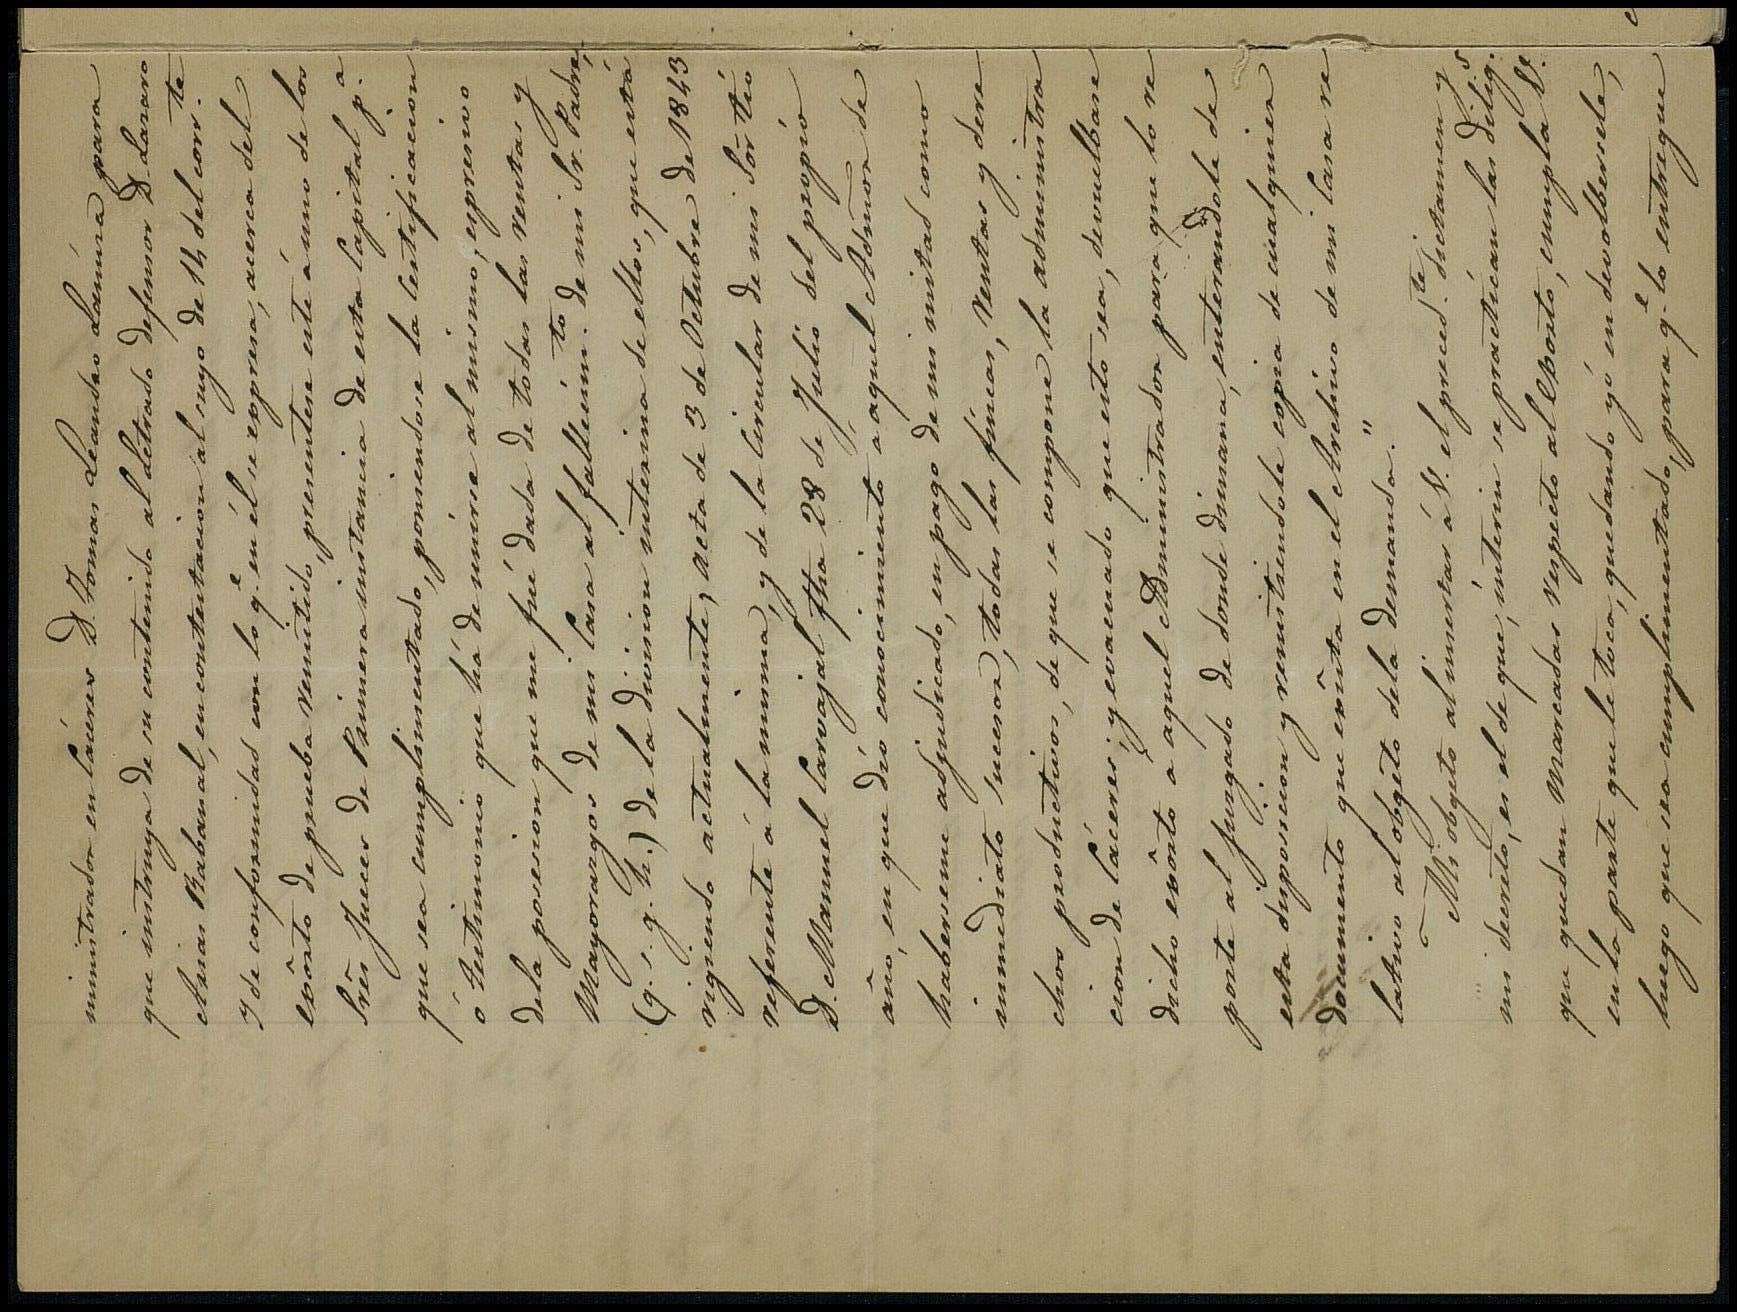 ministrador en Cáceres D. Tomas Leandro Lamúa para
que instruya de su contenido al Letrado defensor D. Lazaro
Arias Rabanal, en contestacion al suyo de 14 del corr.te
Y de conformidad con lo q.e en él se expresa, acerca del
exôrto de prueba remitido, presentese este á uno de los
Sres Jueces de Primera instancia de esta Capital p.a
que sea cumplimentado, poniendose la Certificacion
ó testimonio que há de unirse al mismo, espresivo
dela posesion que me fué dada de todas las rentas y
Mayorazgos de mi Casa al fallecim.to de mi Sr. Padre,
(q. s. g. h.) de la division interina de ellos, que está
rigiendo actualmente, acta de 3 de Octubre de 1843
referente á la misma, y de la Circular de mi Sor tio
D. Manuel Carvajal fha 28 de Julio del propio
año, en que dió conocimiento a aquel Admor de
haberseme adjudicado, en pago de mi mitad como
inmediato sucesor, todas las fincas, rentas y dere
chos productivos, de que se compone la administra
cion de Cáceres; y evacuado que esto sea, devuelbase
dicho exôrto á aquel Administrador para que lo re
porte al juzgado de donde dimana, enterandole de
esta disposicion y remitiendole copia de cualquier
documento que exîsta en el Archivo de mi Casa re
lativo al objeto dela demanda."
Mi objeto al insertar á V. el preced.te dictamen y
mi decreto, es el de que, interin se practican las dilig.s
que quedan marcadas respecto al exôrto, cumpla V.
en la parte que le toca, quedando yó en devolbersele,
luego que sea cumplimentado, para q.e lo entregue